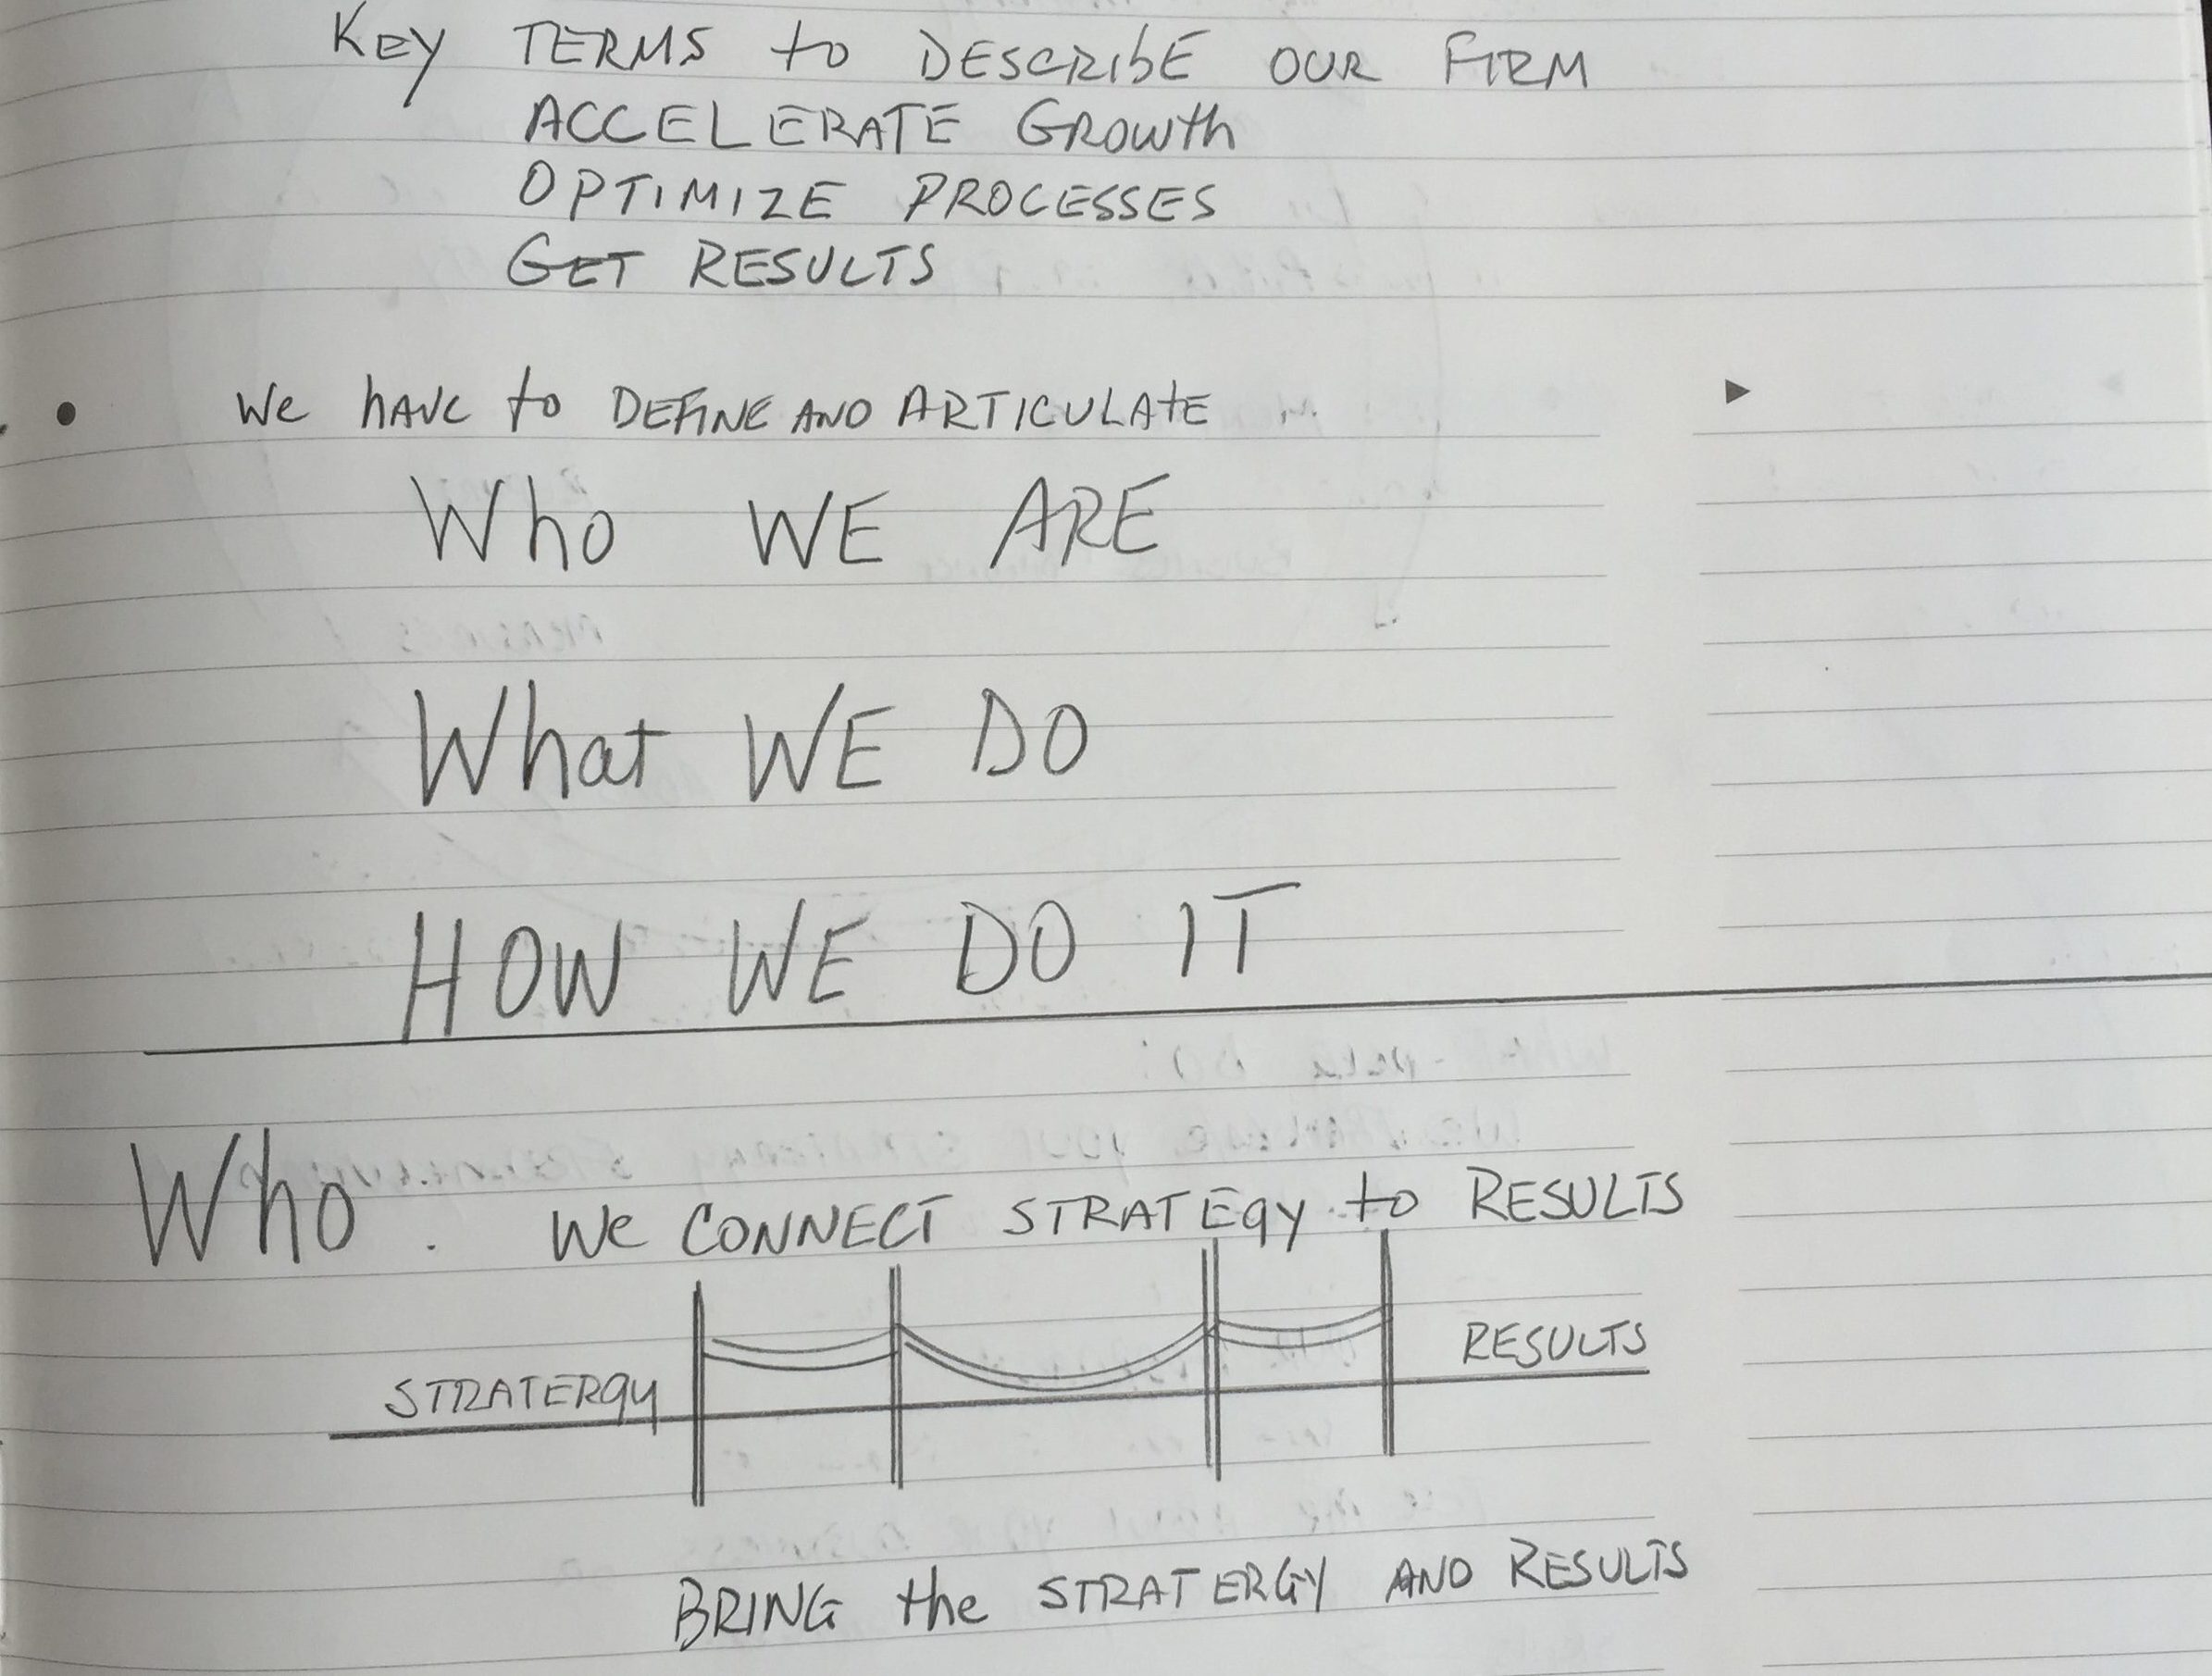 Key TERMS to DESCRIbE OUR FIRM
ACCELERATE GRowth
OPTIMIZE PROCESSES
GET RESULTS
• We hAVE to DEFINE AND ARTICULAtE
Who WE ARE
What WE DO
HOW WE DO IT
Who. We CONNECT STRATEgy to RESULTS
STRATERgy RESULTS
BRING the STRATERGY AND RESULTS